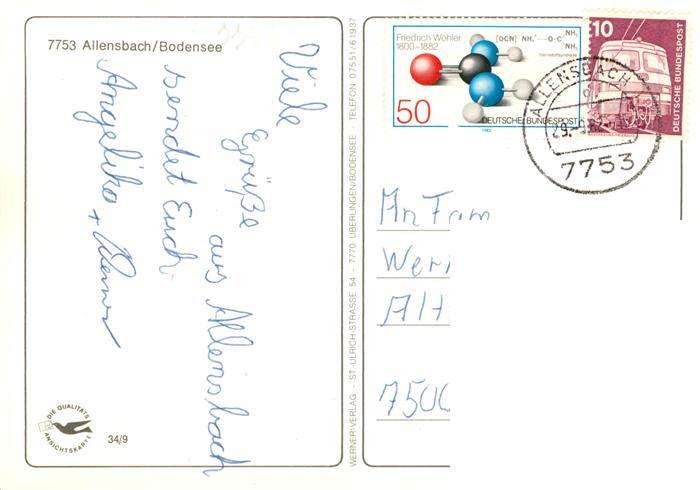 7753 Allensbach/Bodensee
Viele
Grüße
aus Allensbach
sendet Euch
Angelika +
DIE QUALITÄTS
ANSICHTSKARTE
34/9
WERNER-VERLAG - ST.-ULRICH-STRASSE 54 - 7770 ÜBERLINGEN/BODENSEE - TELEFON 07551/61937
Friedrich Wöhler
1800-1882
[OCN]⁻ NH₄⁺ → O=C
NH₂
NH₂
50
DEUTSCHE BUNDESPOST
1982
10
DEUTSCHE BUNDESPOST
ALLENSBACH
7753
An Fam
Wer
Alt
7500